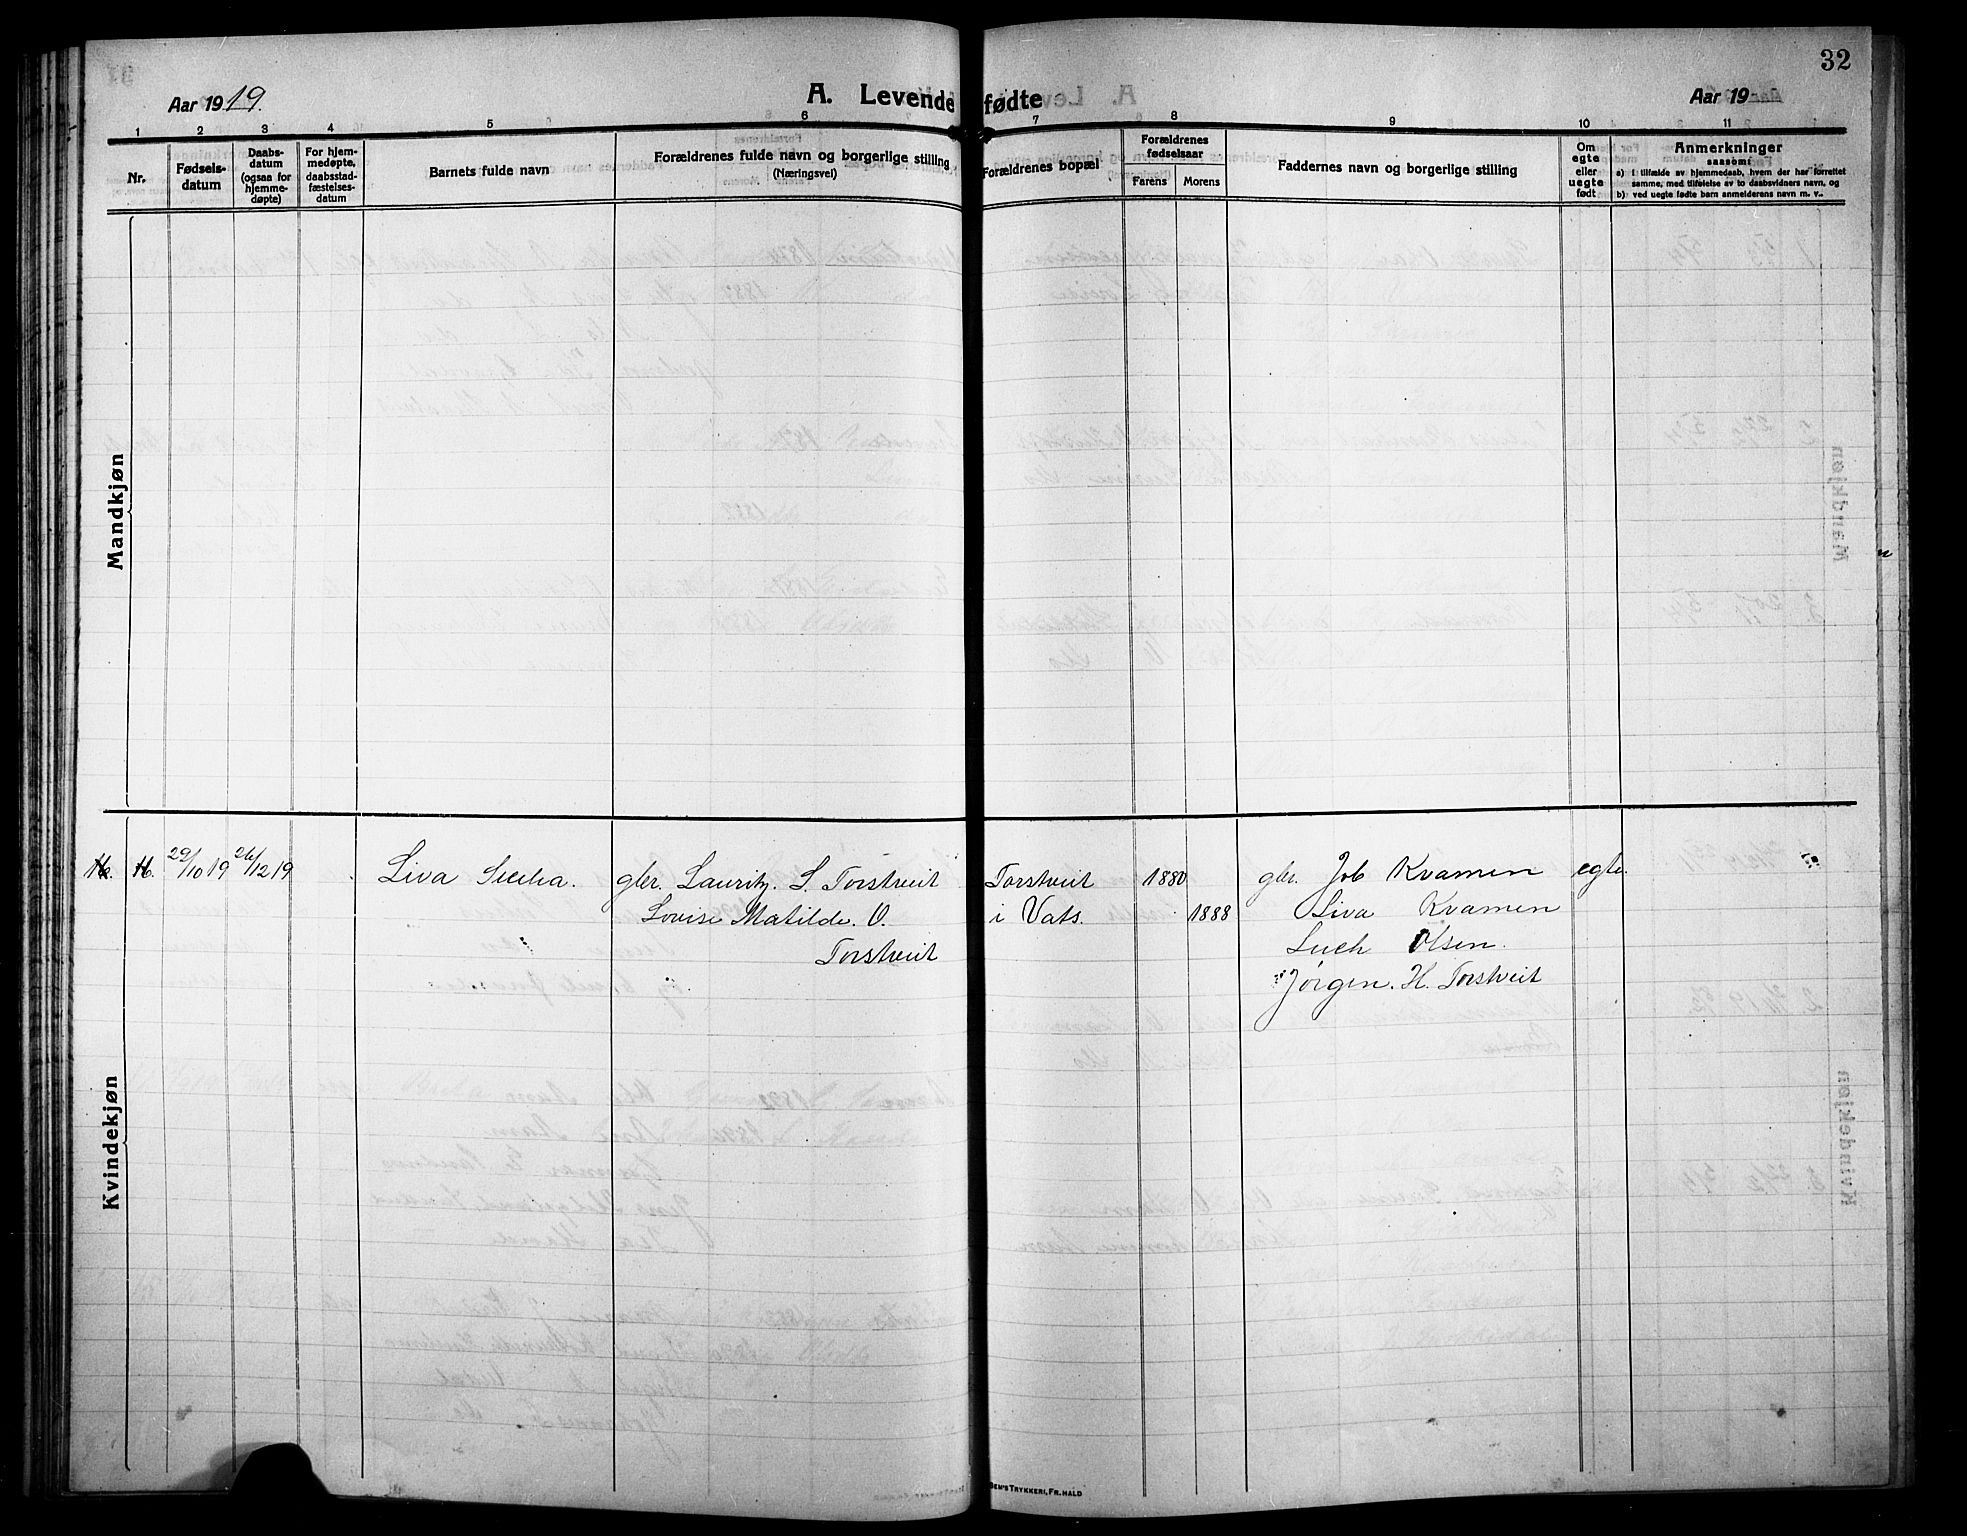 32
Aar 1919.
A. Levende fødte
Aar 19
1 2 3 4 5 6 7 8 9 10 11
Nr.
Fødsels-
datum
Daabs-
datum
(ogsaa for
hjemme-
døpte)
For hjem-
medøpte,
daabsstad-
fæstelses-
datum
Barnets fulde navn
Forældrenes fulde navn og borgerlige stilling
(Næringsvei)
Forældrenes bopæl
Forældrenes
fødselsaar
Farens Morens
Faddernes navn og borgerlige stilling
Om
egte
eller
uegte
født
Anmerkninger
saasom:
a) i tilfælde av hjemmedaab, hvem der har forrettet
samme, med tilføielse av to daabsvidners navn, og
b) ved uegte fødte barn anmelderens navn m. v.
Mandkjøn
Kvindekjøn
16. 29/10 19 26/12 19 Liva gbr. Lauritz. S. Torstveit Torstveit 1880 gbr. Job Kvamen egte.
Lovise Matilde. O. i Vats. 1888 Liva Kvamen
Torstveit Olsen.
Jørgen. H. Torstveit
TRYKKERI, FR. HALD